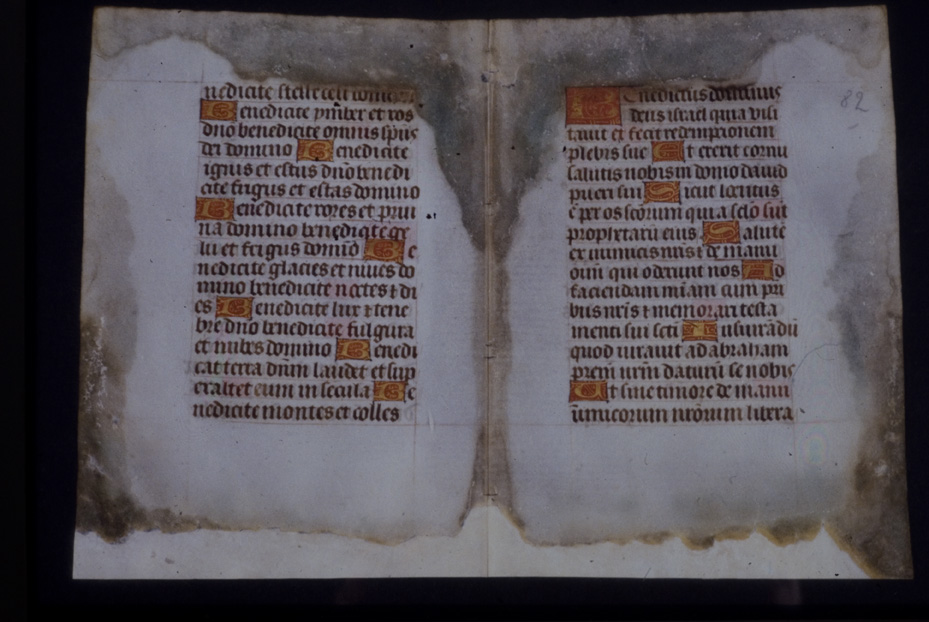 nedicite stelle celi domino
Benedicite ymber et ros
dño benedicite omnis sp̃us
dei domino Benedicite
ignis et estus dño benedi
cite frigus et estas domino
Benedicite rores et prui
na domino benedicite ge
lu et frigus domĩo Be
nedicite glacies et niues do
mino benedicite noctes ⁊ di
es Benedicite lux ⁊ tene
bre dño benedicite fulgura
et nubes domino Benedi
cat terra dñm laudet et sup
exaltet eum in secula Be
nedicite montes et colles
82
Benedictus dominus
deus israel quia visi
tauit et fecit redemptionem
plebis sue Et erexit cornu
salutis nobis in domo dauid
pueri sui Sicut locutus
ẽ per os sc̃orum qui a sc̃lo sũt
prophetarũ eius Salutẽ
ex inimicis nr̃is ⁊ de manu
oĩm qui oderunt nos Ad
faciendam mĩam cum pr̃i
bus nr̃is ⁊ memorari testa
menti sui sc̃ti Iusiurãdũ
quod iurauit ad abraham
prem̃ nr̃m daturũ se nobis
Ut sine timore de manu
inimicorum nr̃orum libera